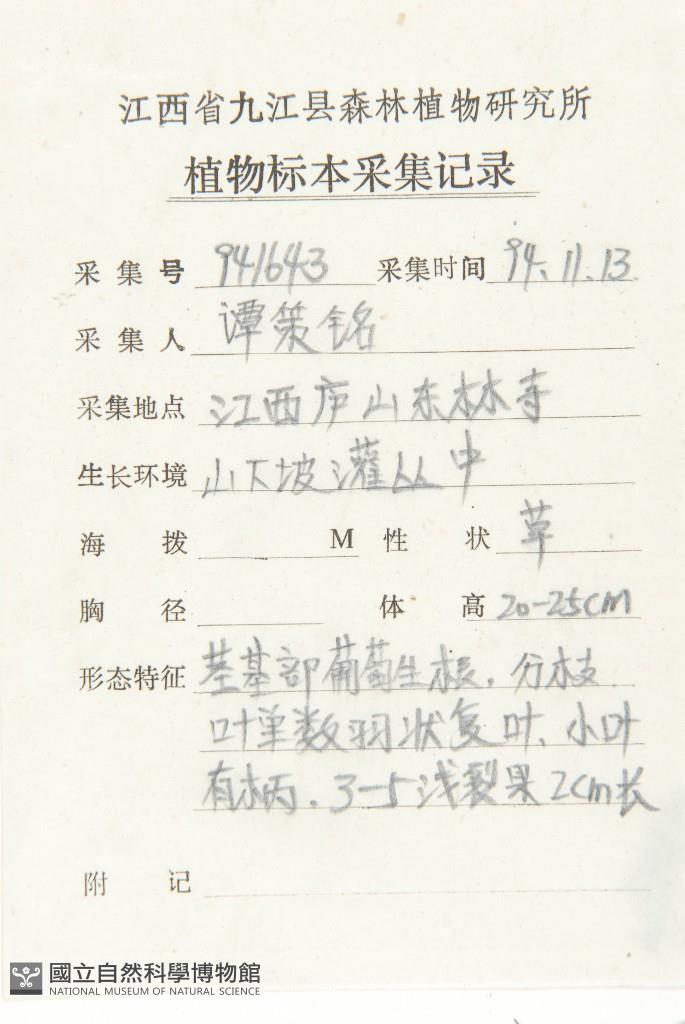 江西省九江县森林植物研究所
植物标本采集记录
采集号 941643 采集时间 94.11.13
采集人 谭策铭
采集地点 江西庐山东林寺
生长环境 山下坡灌丛中
海拨 M 性状 草
胸径 体高 20-25cm
形态特征 茎基部葡萄生根，分枝
叶单数羽状复叶、小叶
有柄．3-5浅裂果2cm长
附记
國立自然科學博物館
NATIONAL MUSEUM OF NATURAL SCIENCE